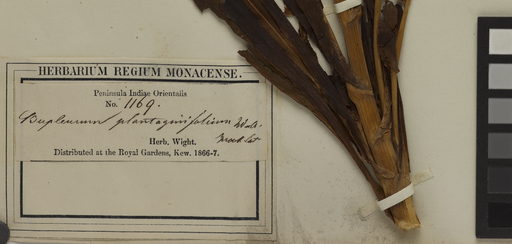 HERBARIUM REGIUM MONACENSE.
Peninsula Indiae Orientalis
No. 1169.
Bupleurum plantaginifolium
Herb. Wight.
Distributed at the Royal Gardens, Kew. 1866-7.